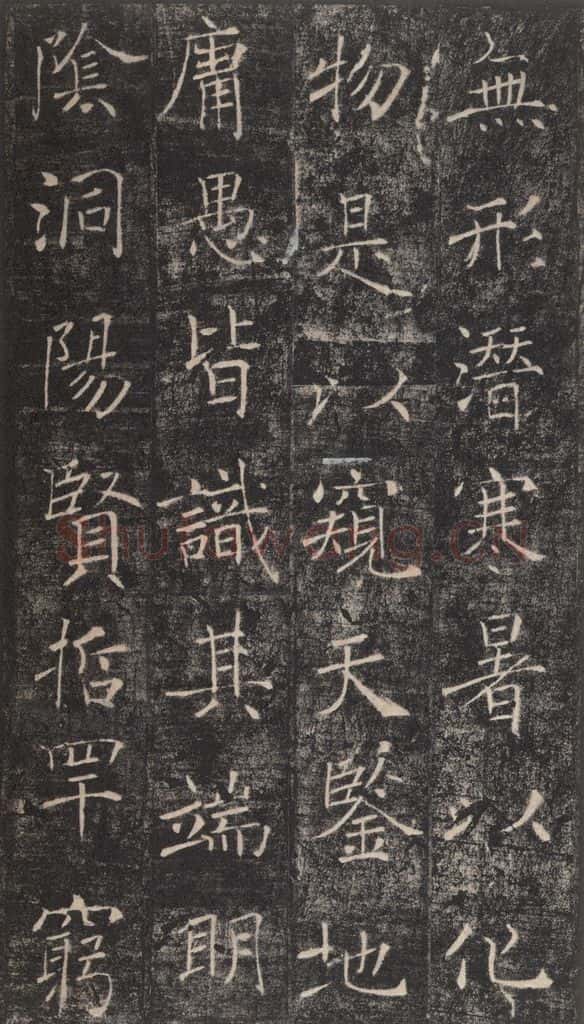 無形潛寒暑以化
物是以窺天鑒地
庸愚皆識其端明
陰洞陽賢哲罕窮
shufawang.cn